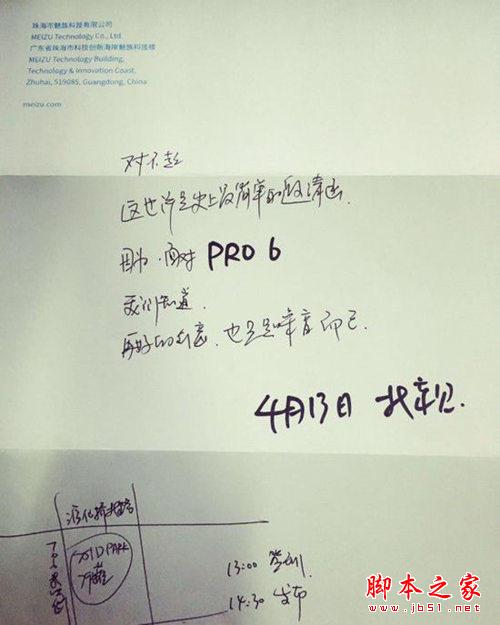 珠海市魅族科技有限公司
MEIZU Technology Co., Ltd.
广东省珠海市科技创新海岸魅族科技楼
MEIZU Technology Building,
Technology & Innovation Coast,
Zhuhai, 519085, Guangdong, China
meizu.com
对不起
这也许是史上最简单的邀请函.
因为.面对 PRO 6
我们知道.
再好的创意.也只是噪音而已.
4月13日 北京见.
751D PARK
13:00 签到
14:30 发布
脚本之家
www.jb51.net